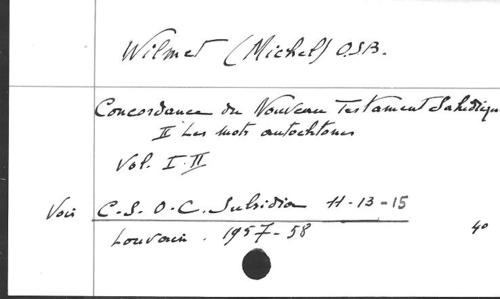 Wilmet (Michel) O.S.B.
Concordance du Nouveau Testament Sahidique
II Les mots autochtones
Vol. I-II
Voir C.S.O.C. Subsidia 11-13-15
Louvain. 1957-58
4°